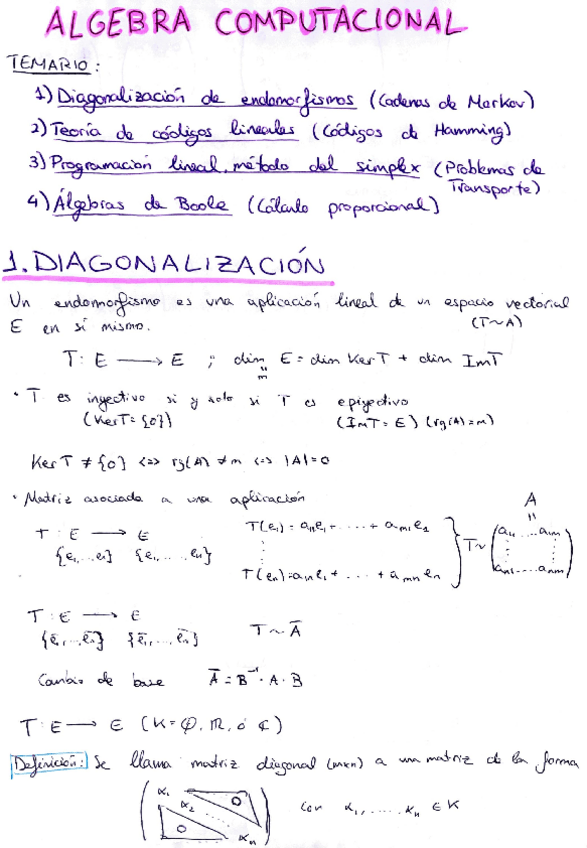 ALGEBRA COMPUTACIONAL
TEMARIO:
1) Diagonalización de endomorfismos (Cadenas de Markov)
2) Teoría de códigos lineales (Códigos de Hamming)
3) Programación lineal, método del simplex (Problemas de Transporte)
4) Álgebras de Boole (Cálculo proporcional)
1. DIAGONALIZACIÓN
Un endomorfismo es una aplicación lineal de un espacio vectorial
E en sí mismo. (T~A)
T: E ⟶ E ; dim E = dim Ker T + dim Im T
"
m
· T es inyectivo si y solo si T es epiyectivo
(Ker T = {0}) (Im T = E) (rg(A) = m)
Ker T ≠ {0} <=> rg(A) ≠ m <=> |A| = 0
· Matriz asociada a una aplicación
T : E ⟶ E
{e₁,...eₙ} {e₁,...eₙ}
T(e₁) = a₁₁e₁ + ... + aₘ₁ e₁
⋮
T(eₙ) = a₁ₙe₁ + ... + aₘₙ eₙ
T ~
A
"
(a₁₁ ... a₁ₘ
aₙ₁ .... aₙₘ)
T : E ⟶ E
{ē₁,...ēₙ} {ē₁,...ēₙ} T ~ Ā
Cambio de base Ā = B⁻¹ · A · B
T : E ⟶ E (K = Q, R, ó C)
Definición: Se llama matriz diagonal (mxn) a una matriz de la forma
(α₁ α₂ 0 0 αₙ) con α₁, .... αₙ ∈ K